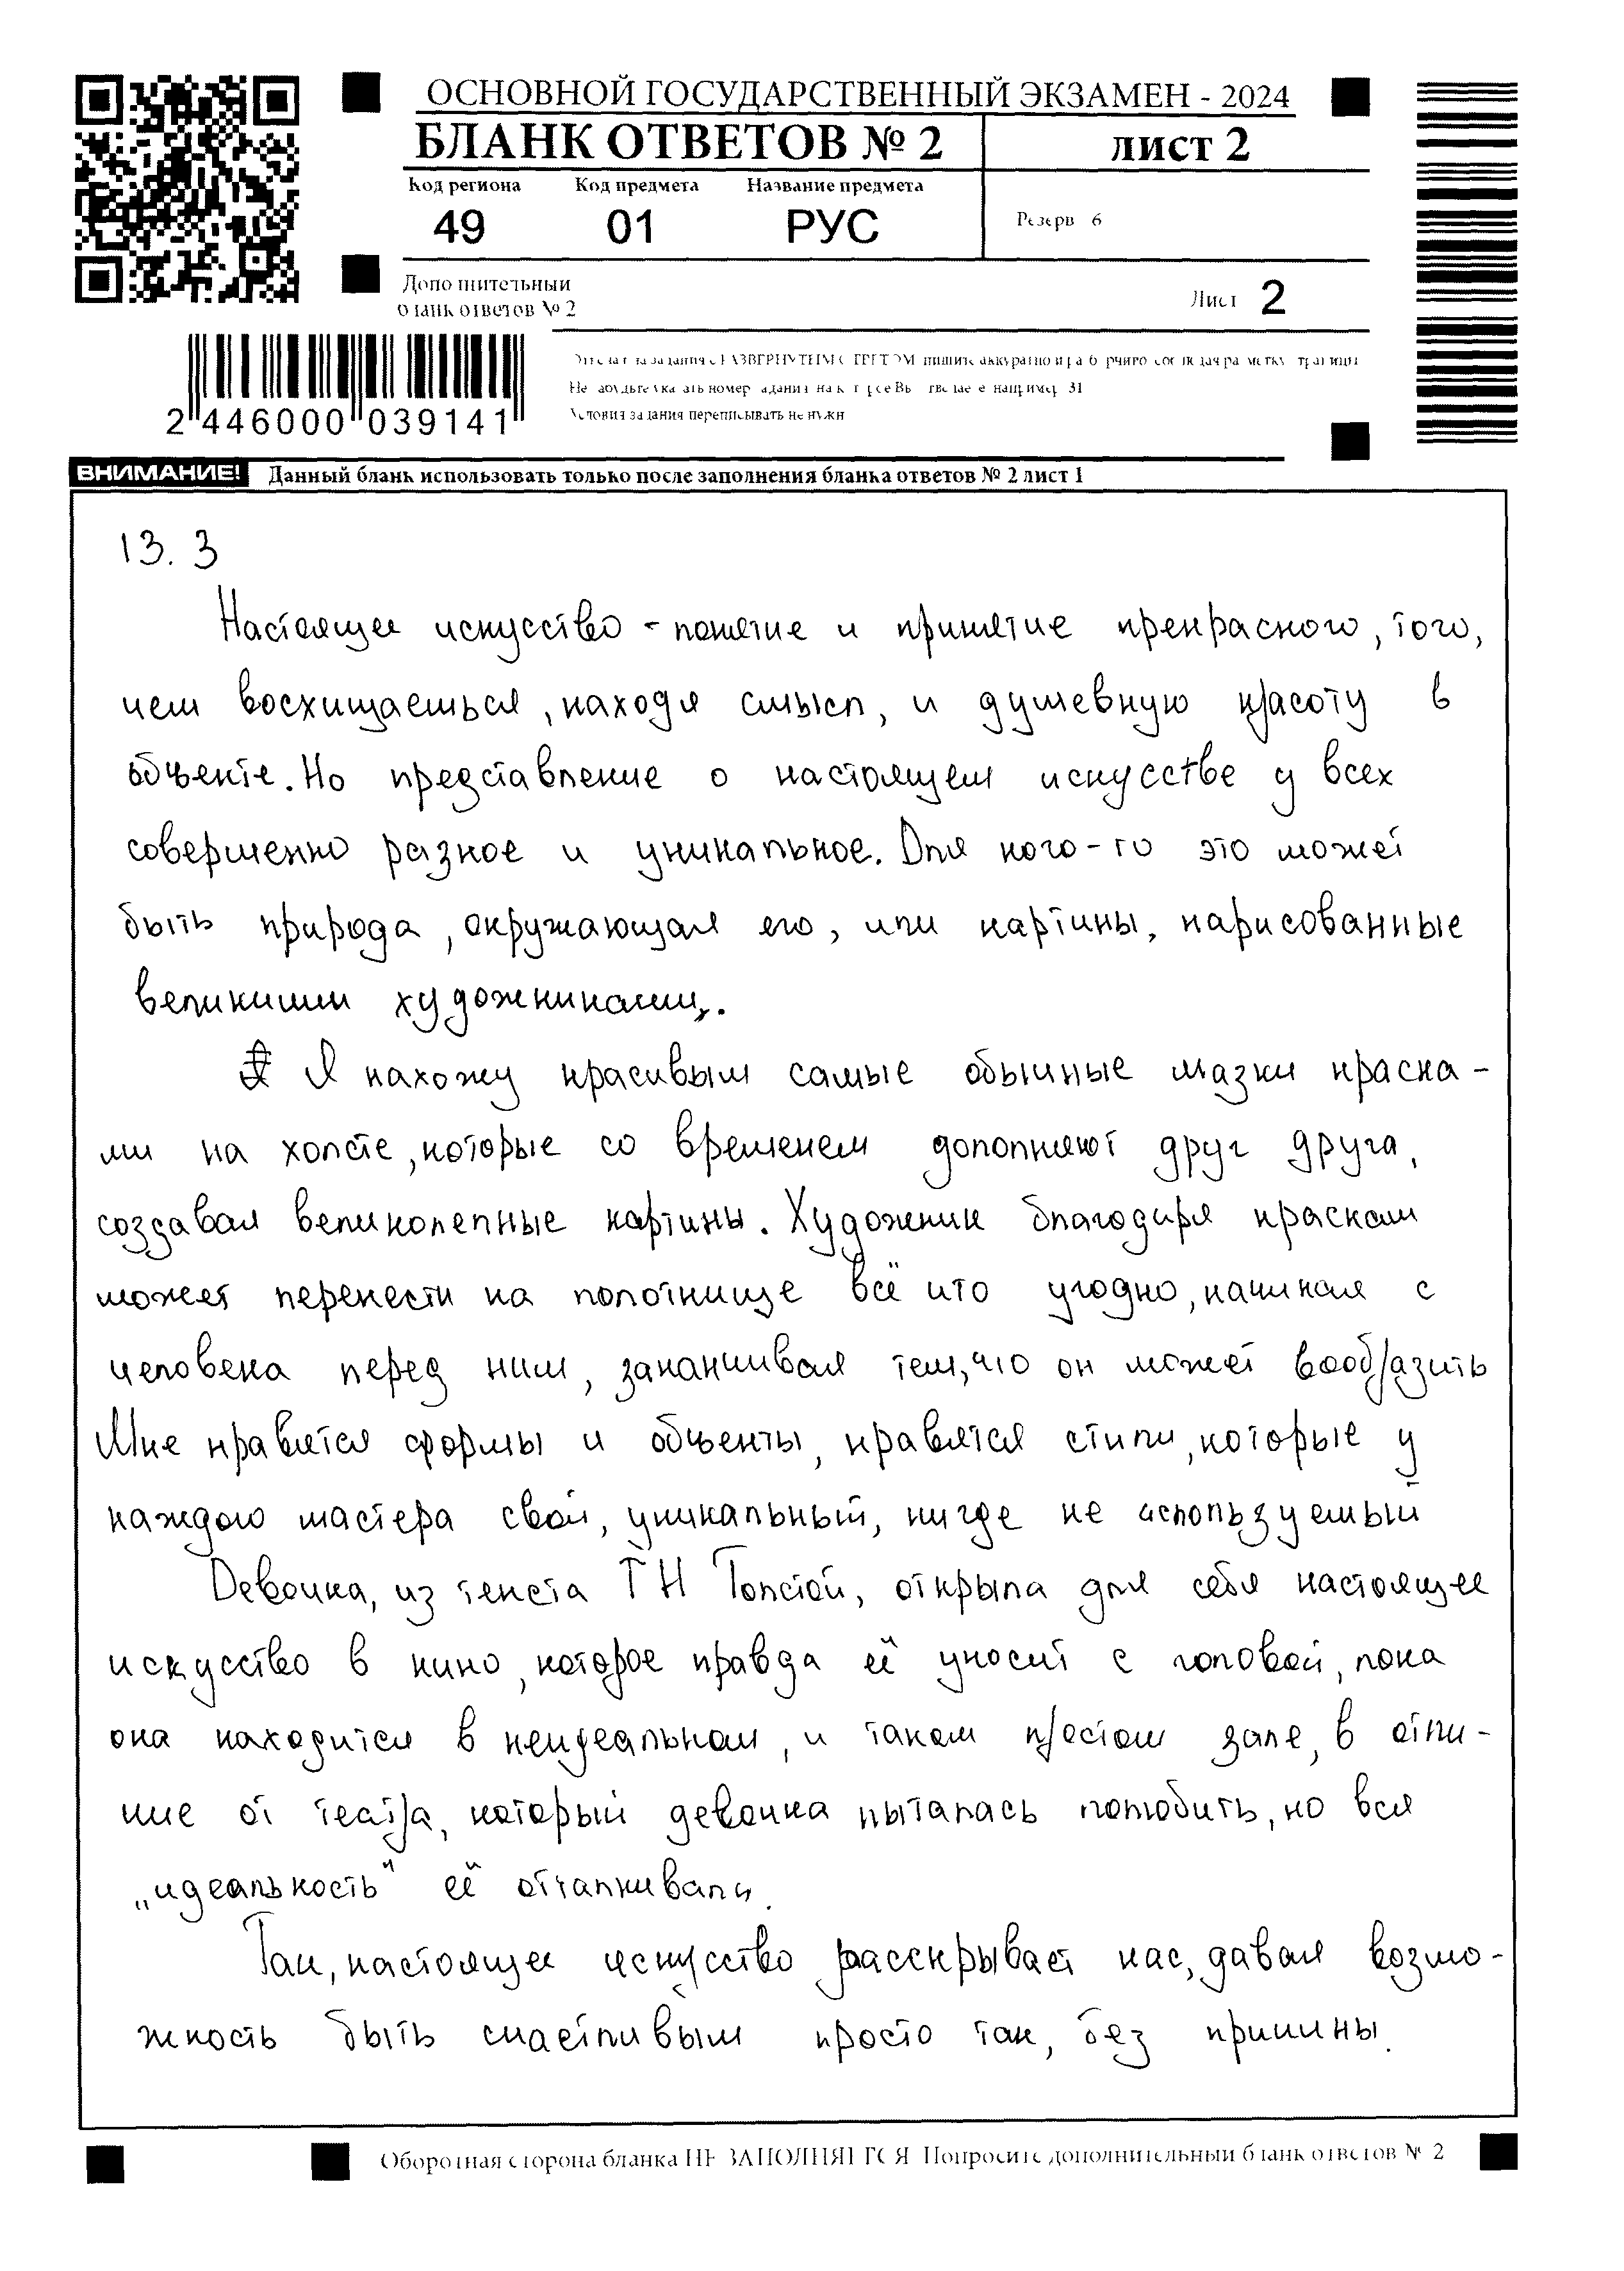 ОСНОВНОЙ ГОСУДАРСТВЕННЫЙ ЭКЗАМЕН - 2024
БЛАНК ОТВЕТОВ № 2
ЛИСТ 2
Код региона Код предмета Название предмета
49 01 РУС
Резерв 6
Дополнительный
бланк ответов № 2
Лист 2
2 446000 039141
Условия задания переписывать не нужно
ВНИМАНИЕ! Данный бланк использовать только после заполнения бланка ответов № 2 лист 1
13.3
Настоящее искусство - понятие и принятие прекрасного, того,
чем восхищаешься, находя смысл, и душевную красоту в
объекте. Но представление о настоящем искусстве у всех
совершенно разное и уникальное. Для кого-то это может
быть природа, окружающая его, или картины, нарисованные
великими художниками.
Я нахожу красивым самые обычные мазки краска-
ми на холсте, которые со временем дополняют друг друга,
создавая великолепные картины. Художник благодаря краскам
может перенести на полотнище всё что угодно, начиная с
человека перед ним, заканчивая тем, что он может вообразить
Мне нравятся формы и объекты, нравятся стили, которые у
каждого мастера свой, уникальный, нигде не используемый
Девочка, из текста Т Н Толстой, открыла для себя настоящее
искусство в кино, которое правда её уносит с головой, пока
она находится в неидеальном, и таком простом зале, в отли-
чие от театра, который девочка пыталась полюбить, но вся
„идеальность" её отталкивала.
Так, настоящее искусство расскрывает нас, давая возмо-
жность быть счастливым просто так, без причины.
Оборотная сторона бланка НЕ ЗАПОЛНЯЕТСЯ Попросите дополнительный бланк ответов № 2